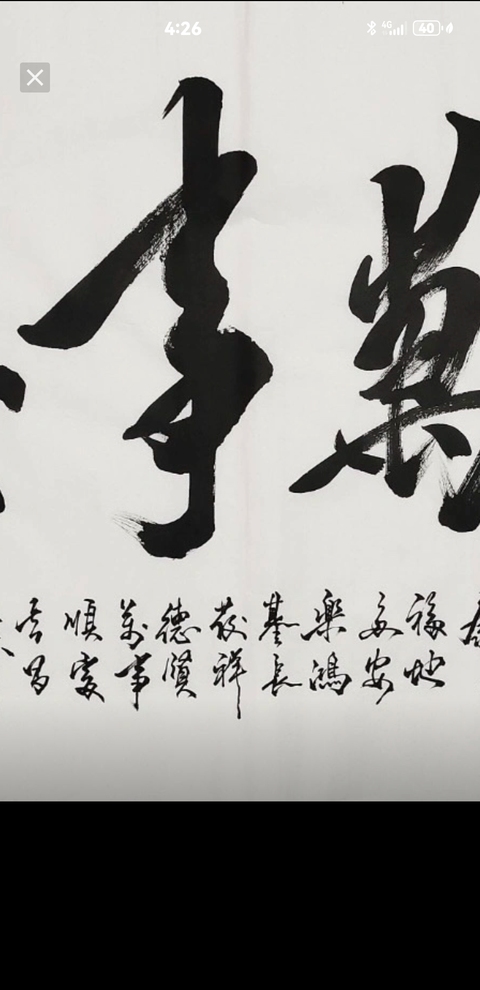 4:26
4G
40
萬
事
福地
安
樂鴻
基長
發祥
德賢
萬事
順家
吉昌